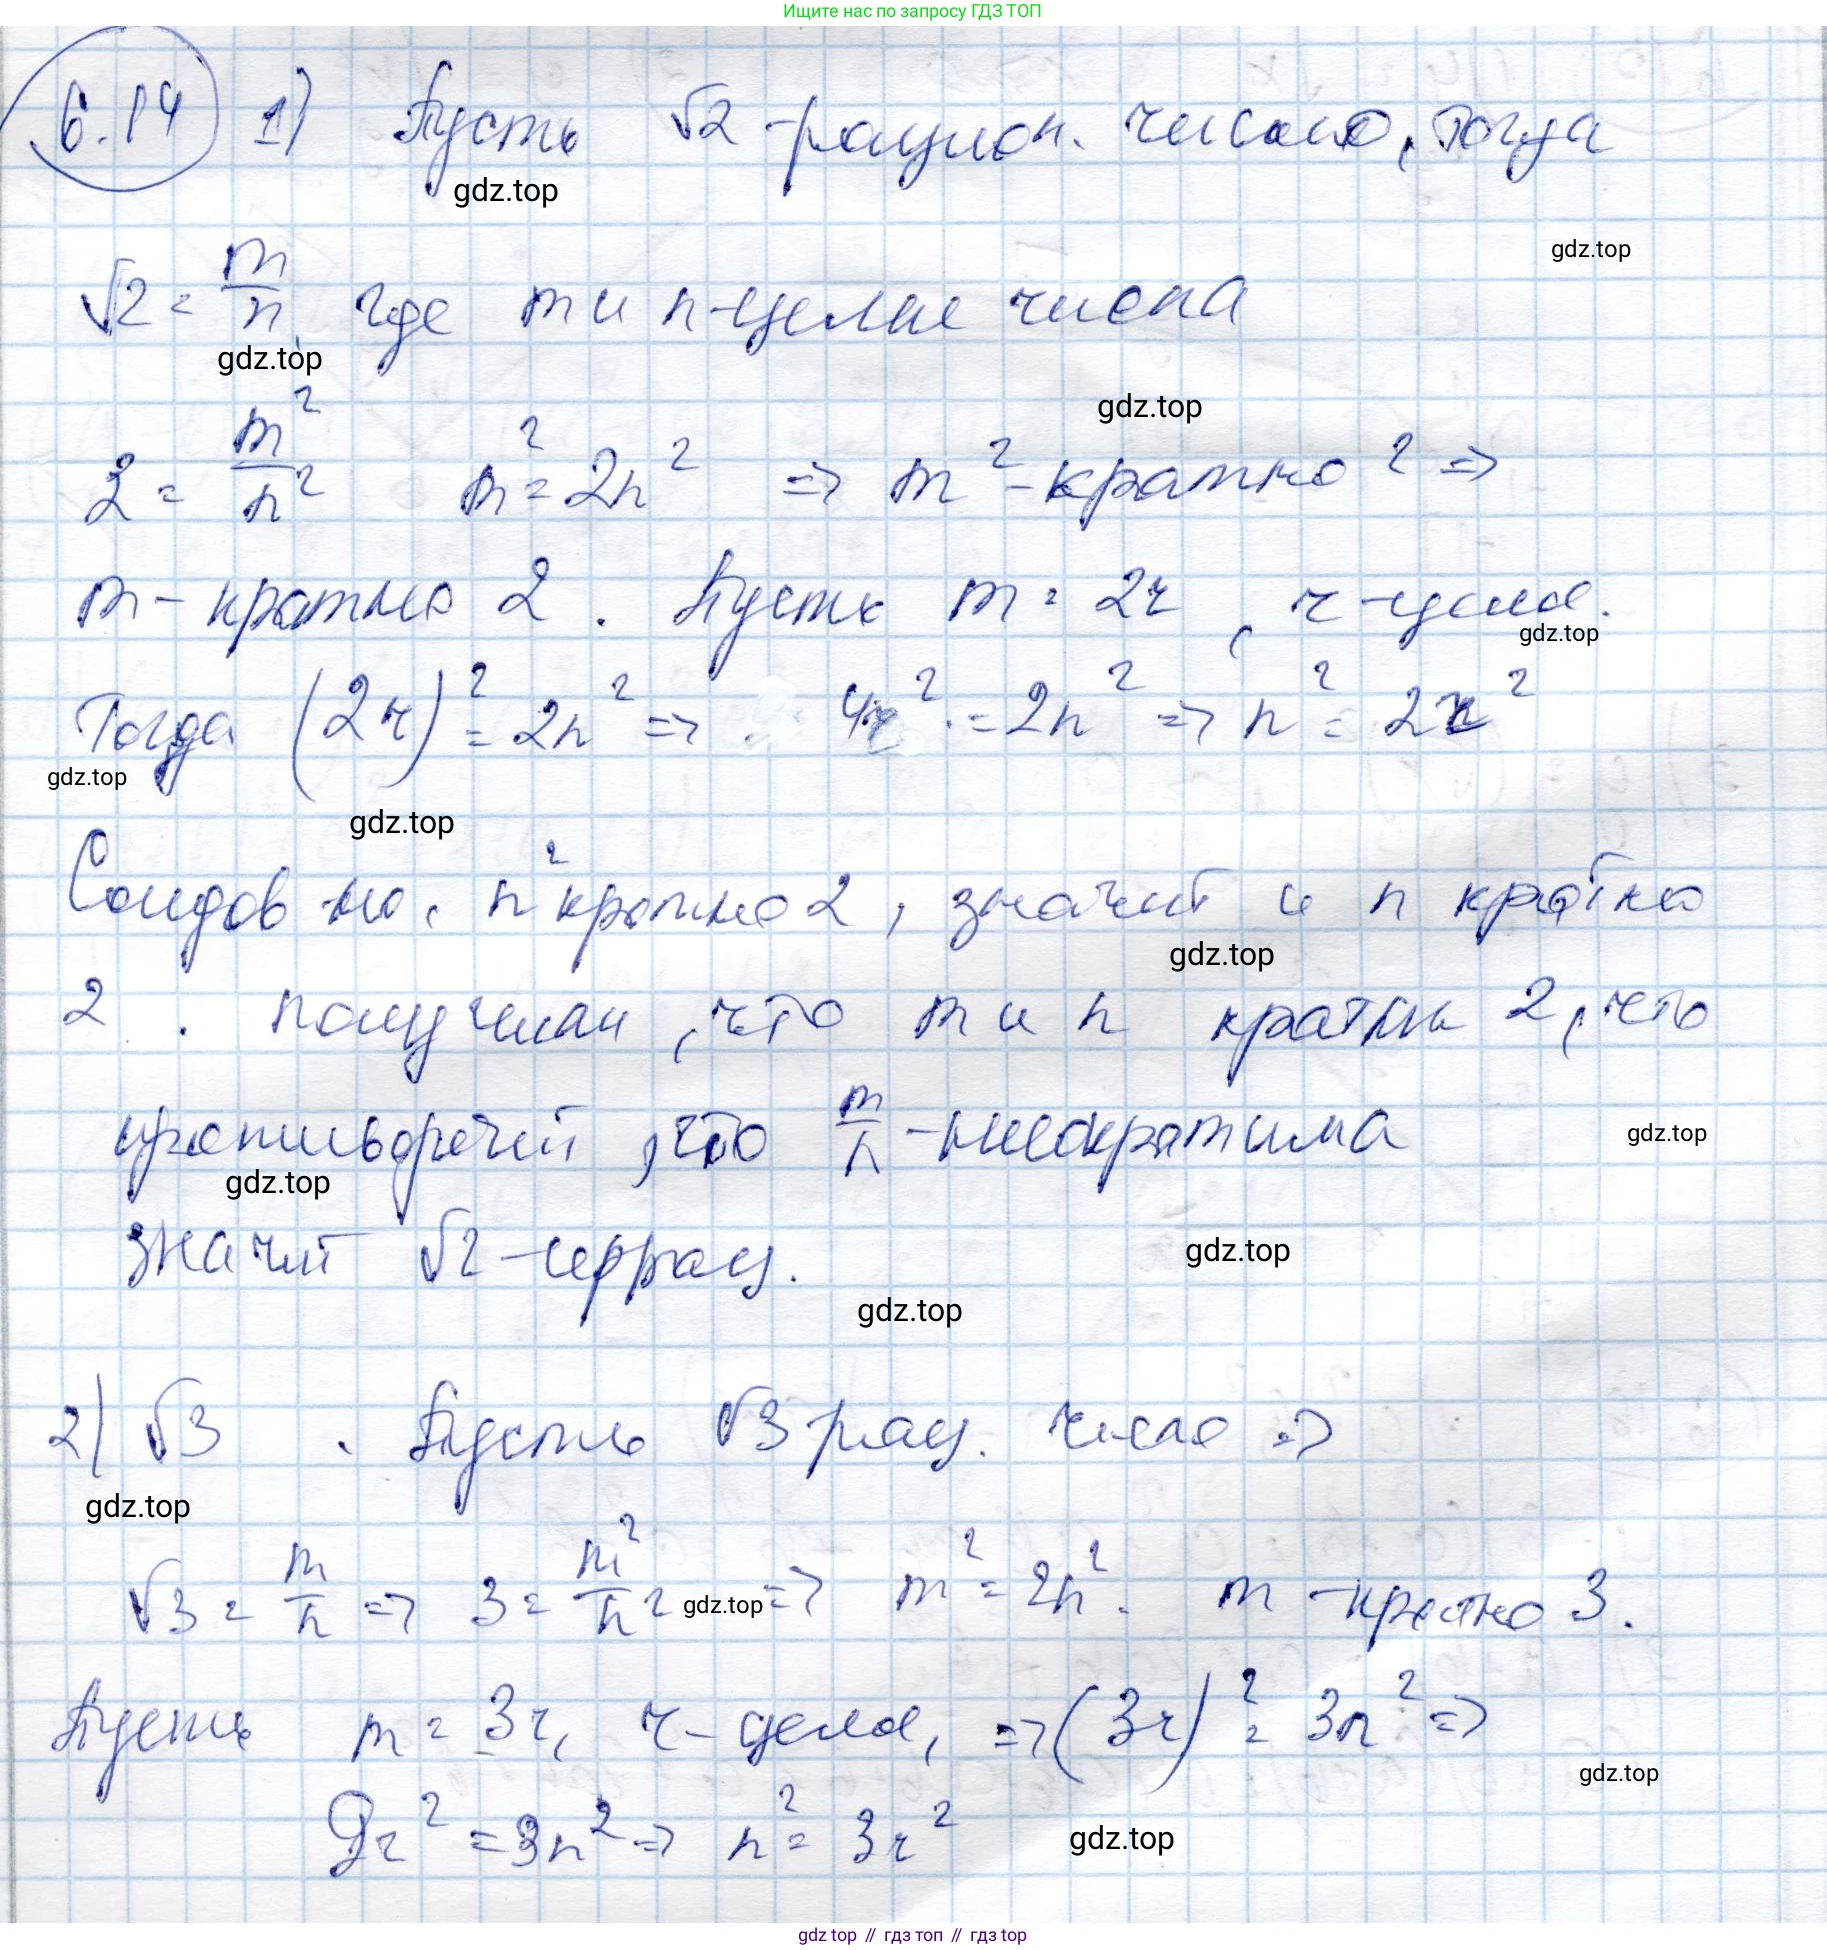 Ищите нас по запросу ГДЗ ТОП
6.14 1) Пусть √2 - рацион. число, тогда
gdz.top
gdz.top
√2 = m/n, где m и n - целые числа
gdz.top
gdz.top
2 = m²/n² m² = 2n² => m² - кратно 2 =>
m - кратно 2. Пусть m = 2r, r - целое.
gdz.top
Тогда (2r)² = 2n² => 4r² = 2n² => n² = 2r²
gdz.top
gdz.top
n² кратно 2, значит и n кратно
gdz.top
2. Получили, что m и n кратны 2, что
противоречит, что m/n - несократима
gdz.top
gdz.top
значит √2 - иррац.
gdz.top
gdz.top
2) √3. Пусть √3 рац. число =>
gdz.top
√3 = m/n => 3 = m²/n² => m² = 2n². m - кратно 3.
gdz.top
Пусть m = 3r, r - целое, => (3r)² = 3n² =>
gdz.top
9r² = 3n² => n² = 3r²
gdz.top
gdz top // гдз топ // гдз top